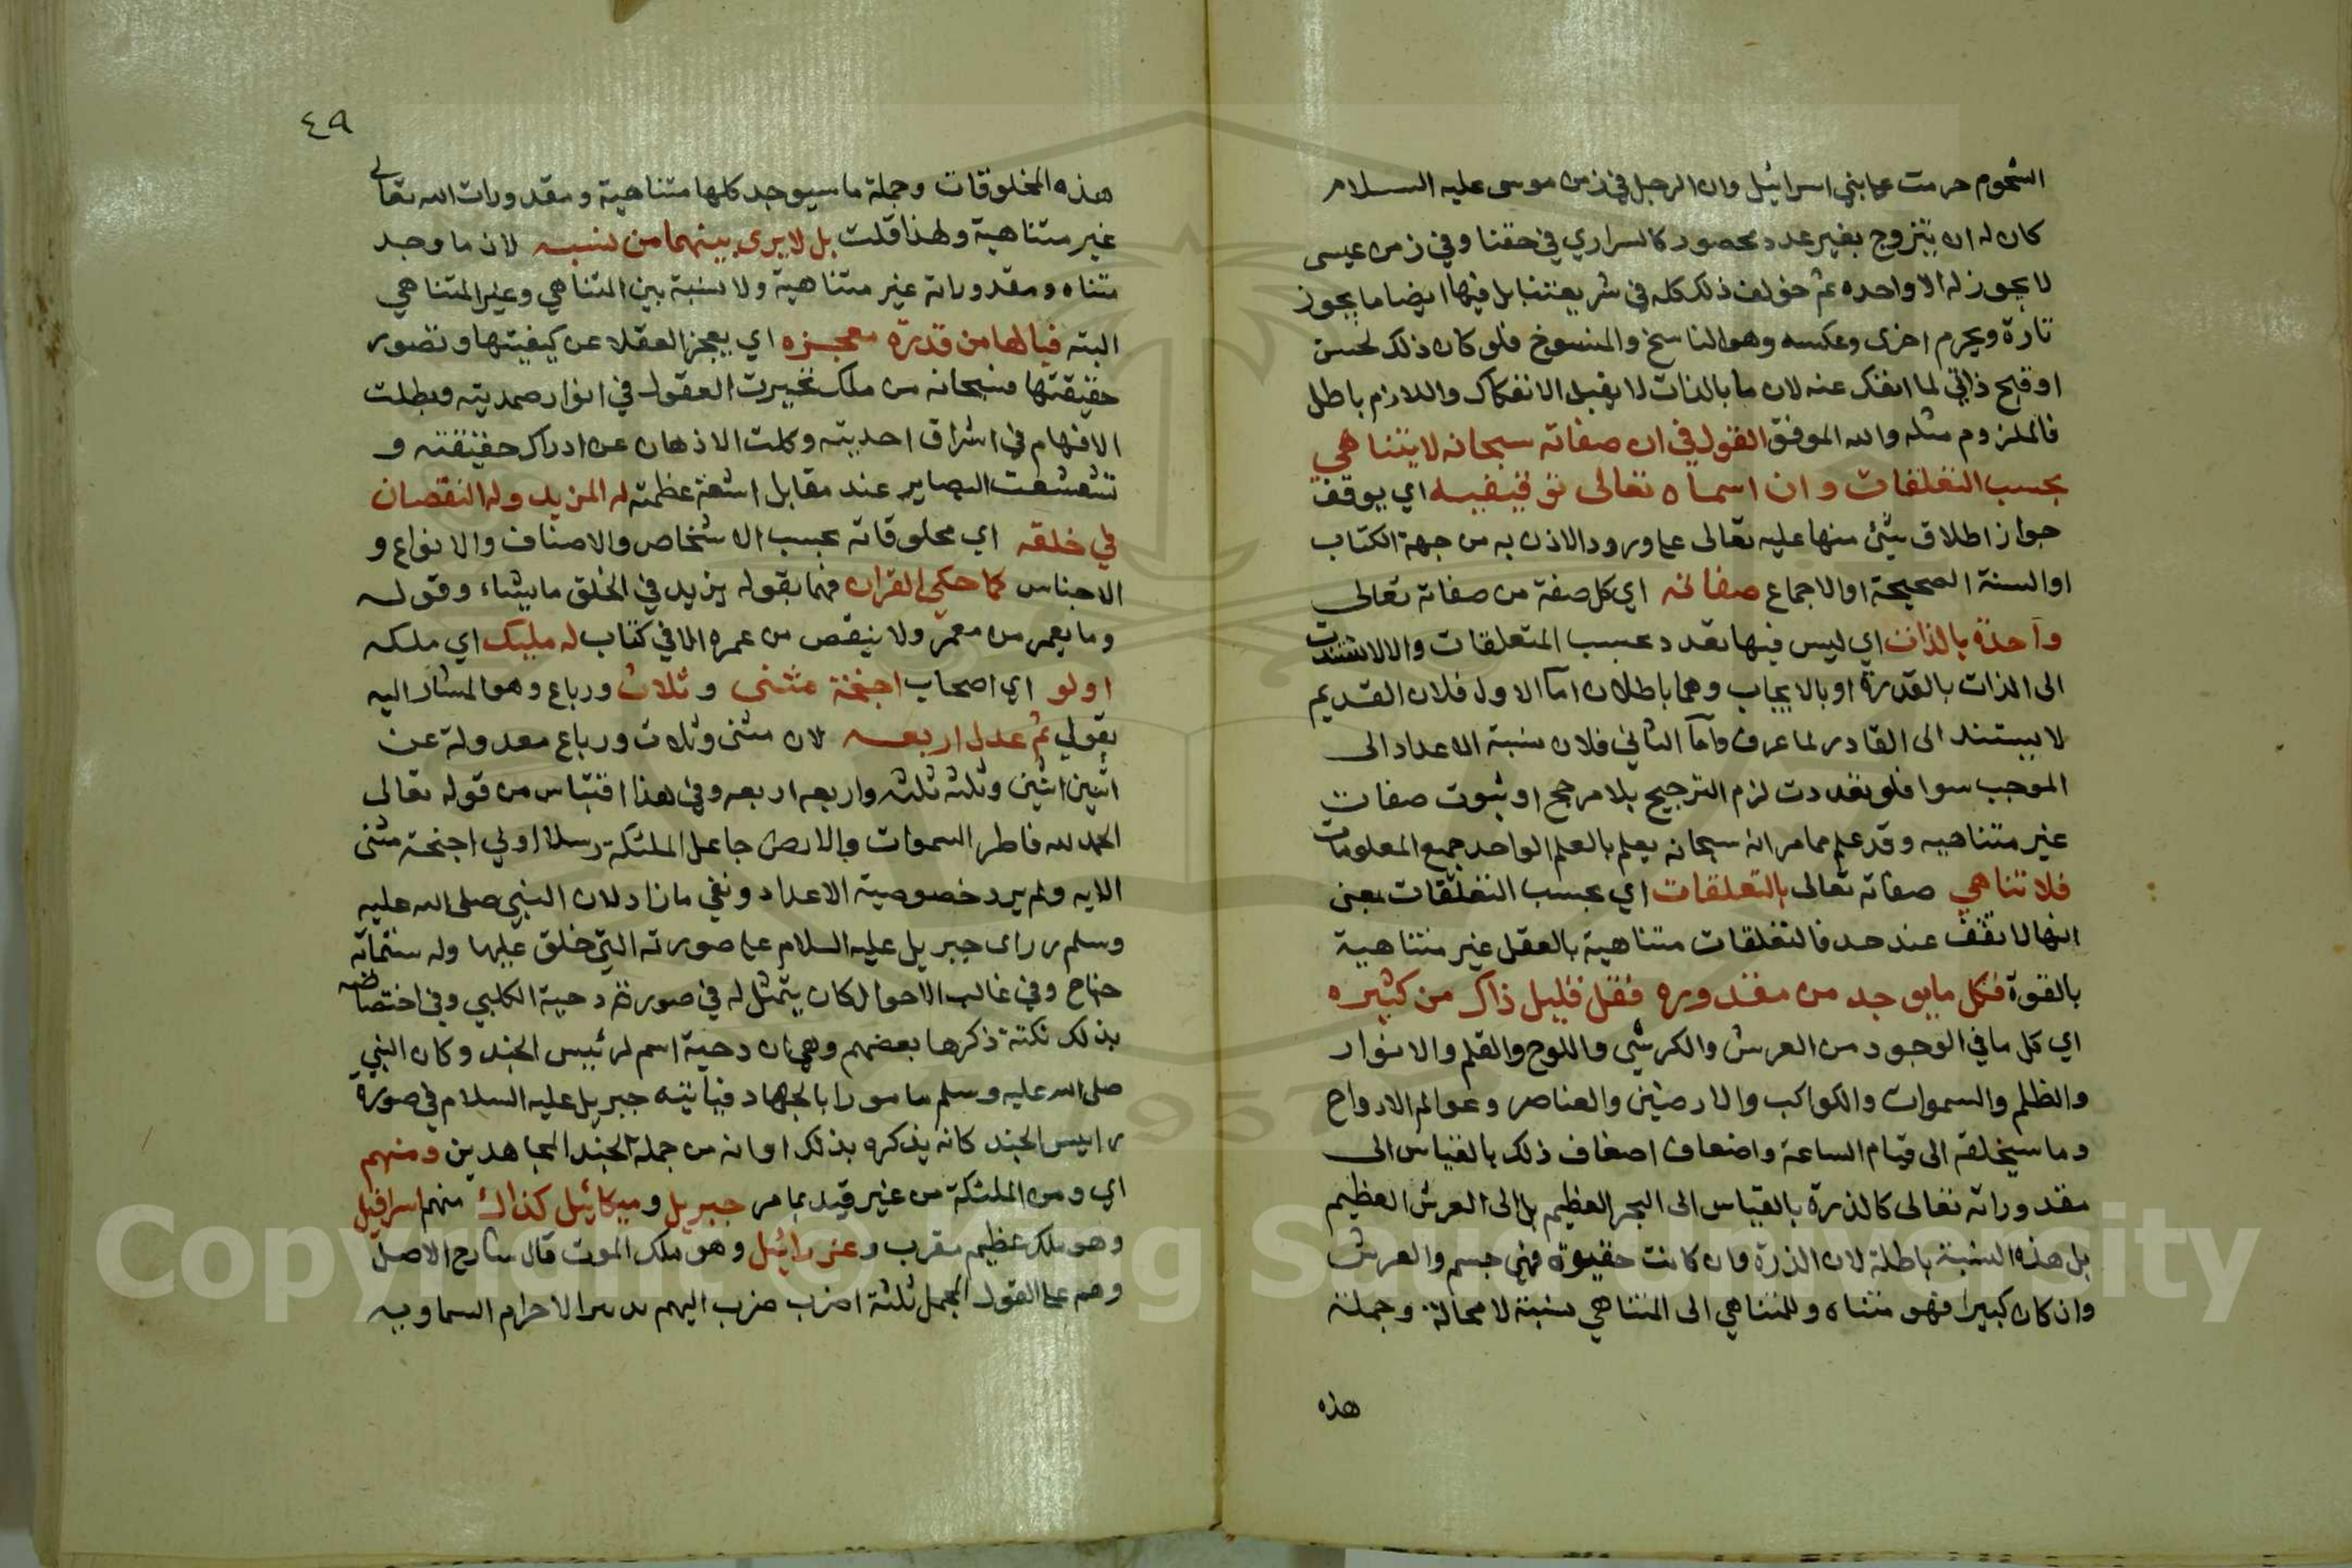 الشحوم حرمت على بني اسرائيل وان الرجل في زمن موسى عليه السلام
كان له ان يتزوج بغير عدد محصور كالسراري في حقنا وفي زمن عيسى
لا يجوز له الا واحده ثم خولف ذلك كله في شريعتنا بل فيها ايضا ما يجوز
تارة ويحرم اخرى وعكسه وهو الناسخ والمنسوخ فلو كان ذلك لحسن
او قبح ذاتي لما انفك عنه لان ما بالذات لا يقبل الانفكاك واللازم باطل
فالملزوم مثله والله الموفق القول في ان صفاته سبحانه لا يتناهي
بحسب التعلقات وان اسماه تعالى توقيفيه اي يوقف
جواز اطلاق شئ منها عليه تعالى على ورود الاذن به من جهة الكتاب
او السنة الصحيحة او الاجماع صفاته اي كل صفة من صفاته تعالى
واحدة بالذات اي ليس فيها تعدد بحسب المتعلقات والا لاستندت
الى الذات بالقدرة او بالايجاب وهما باطلان اما الاول فلان القديم
لا يستند الى القادر لما عرف واما الثاني فلان نسبة الاعداد الى
الموجب سوا فلو تعددت لزم الترجيح بلا مرجح او ثبوت صفات
غير متناهيه وقد علم مما مر انه سبحانه يعلم بالعلم الواحد جميع المعلومات
فلا تناهي صفاته تعالى بالتعلقات اي بحسب التعلقات بمعنى
انها لا تقف عند حد فالتعلقات متناهية بالعقل غير متناهية
بالقوة فكل ما يوجد من مقدوره فقل قليل ذاك من كثيره
اي كل ما في الوجود من العرش والكرسي واللوح والقلم والانوار
والظلم والسموات والكواكب والارضين والعناصر وعوالم الارواح
وما سيخلقه الى قيام الساعة واضعاف اضعاف ذلك بالقياس الى
مقدوراته تعالى كالذرة بالقياس الى البحر العظيم بل الى العرش العظيم
بل هذه النسبة باطلة لان الذرة وان كانت حقيرة فهي جسم والعرش
وان كان كبيرا فهو متناه وللمتناهي الى المتناهي نسبة لا محالة وجملة
هذه
٤٩
هذه المخلوقات وجملة ما سيوجد كلها متناهية ومقدورات الله تعالى
غير متناهية ولهذا قلت بل لا يرى بينهما من نسبه لان ما وجد
متناه ومقدوراته غير متناهية ولا نسبة بين المتناهي وغير المتناهي
البته فيالها من قدرة معجزه اي يعجز العقلا عن كيفيتها وتصور
حقيقتها فسبحانه من ملك تحيرت العقول في انوار صمديته وبطلت
الافهام في اشراق احديته وكلت الاذهان عن ادراك حقيقته و
تشعشعت البصاير عند مقابل اشعة عظمته له المزيد وله النقصان
في خلقه اي مخلوقاته بحسب الاشخاص والاصناف والانواع و
الاجناس كما حكي القران فهما بقوله يزيد في الخلق ما يشاء وقوله
وما يعمر من معمر ولا ينقص من عمره الا في كتاب له مليك اي ملكه
اولو اي اصحاب اجنحة مثنى وثلاث ورباع وهو المشار اليه
بقولي ثم عدل اربعه لان مثنى وثلاث ورباع معدولة عن
اثنين اثنين وثلثه ثلثه واربعه اربعه وفي هذا اقتباس من قوله تعالى
الحمد لله فاطر السموات والارض جاعل الملئكة رسلا اولي اجنحة مثنى
الايه ولم يرد خصوصية الاعداد ونفي ما زاد لان النبي صلى الله عليه
وسلم راى جبريل عليه السلام على صورته التي خلق عليها وله ستمائة
جناح وفي غالب الاحوال كان يتمثل له في صورة دحية الكلبي وفي اختصاصه
بذلك نكتة ذكرها بعضهم وهي ان دحية اسم لرئيس الجند وكان النبي
صلى الله عليه وسلم مامورا بالجهاد فياتيه جبريل عليه السلام في صورة
راييس الجند كانه يذكره بذلك او انه من جملة الجند المجاهدين ومنهم
اي ومن الملئكة من غير قيد بما مر جبريل وميكائيل كذاك منهم اسرافيل
وهو ملك عظيم مقرب وعزرائيل وهو ملك الموت قال شارح الاصل
وهم على القول المجمل ثلثة اضرب ضرب اليهم تدبير الاجرام السماويه
Copyright © King Saud University
1957